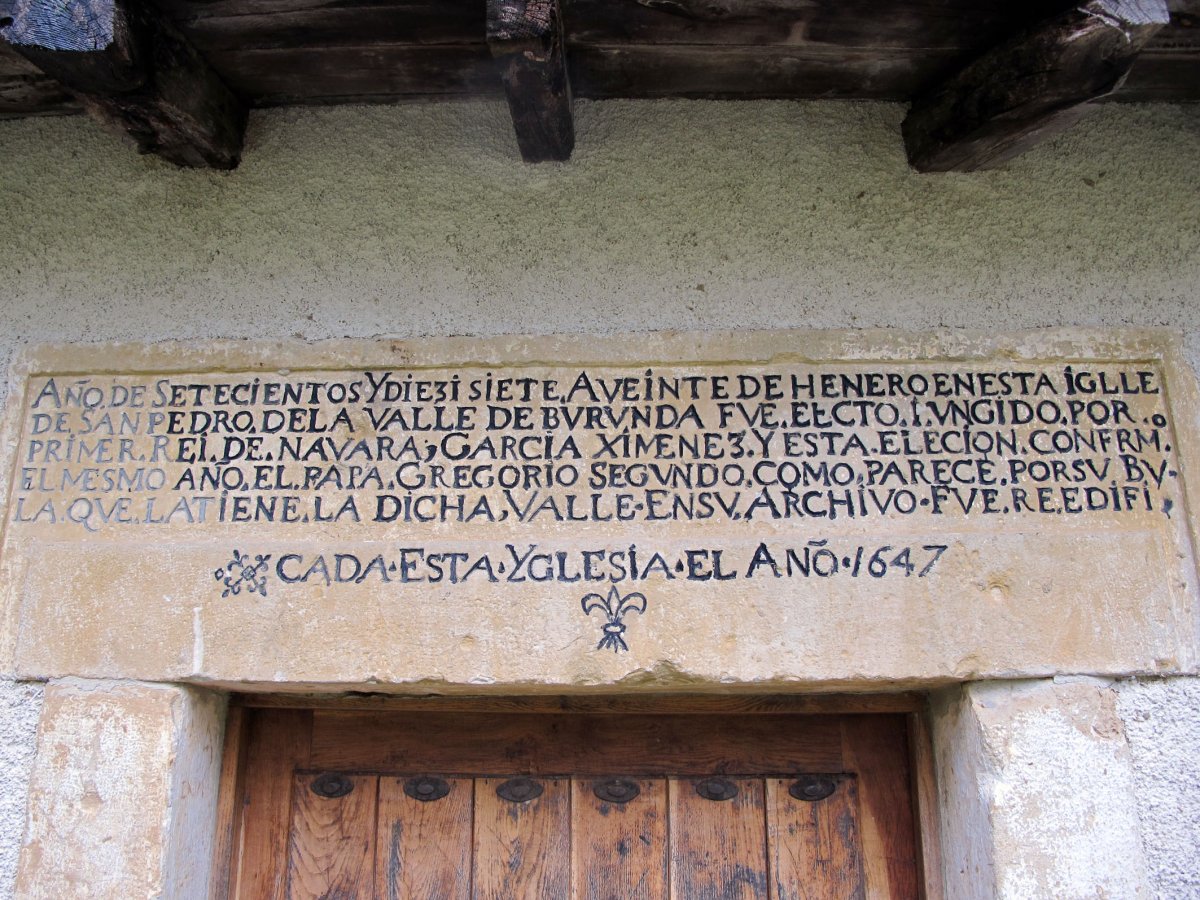 AÑO.DE SETECIENTOS YDIEZI SIETE, AVEINTE DE HENERO ENESTA IGLLE
DE SAN PEDRO.DELA VALLE DE BVRVNDA FVE.ELCTO.I.VNGIDO.POR..o
PRIMER.REI.DE.NAVARA; GARCIA XIMENEZ.Y ESTA.ELECION.CONFRM.
EL MESMO AÑO, EL.PAPA.GREGORIO SEGVNDO.COMO.PARECE.PORSV.BV-
LA.QVE.LATIENE.LA DICHA,VALLE-ENSV,ARCHIVO·FVE.REEDIFI,
CADA·ESTA·YGLESIA·EL AÑO·1647